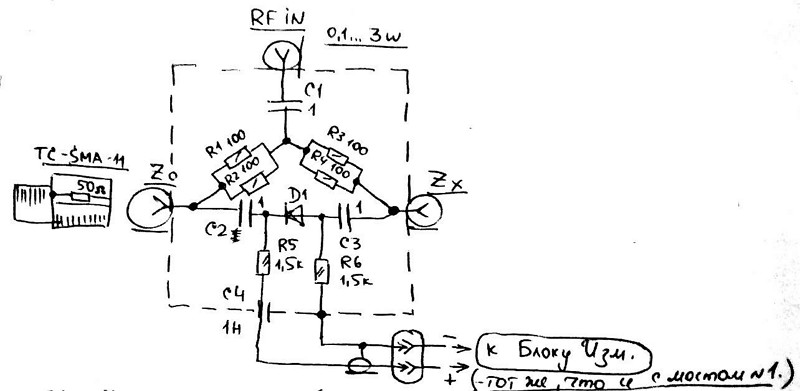 RF iN
0,1...3w
C1
1
R1 100
R2 100
R3 100
R4 100
TC-SMA-11
50Ω
Zo
Zx
D1
1
1
C2
C3
R5
1,5к
R6
1,5к
C4
1Н
-
к Блоку Изм.
+
(-тот же, что и с мостом №1.)